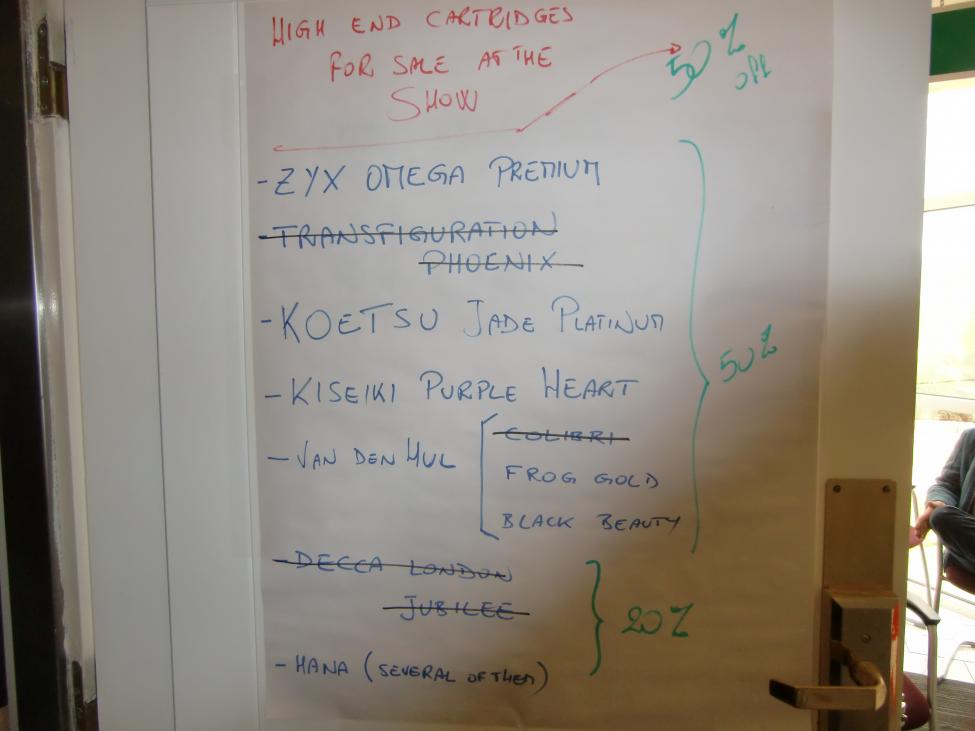 HIGH END CARTRIDGES
FOR SALE AT THE
SHOW
50%
off
- ZYX OMEGA PREMIUM
- TRANSFIGURATION
PHOENIX
- KOETSU JADE PLATINUM
- KISEIKI PURPLE HEART
50%
- VAN DEN HUL
COLIBRI
FROG GOLD
BLACK BEAUTY
- DECCA LONDON
JUBILEE
20%
- HANA (SEVERAL OF THEM)